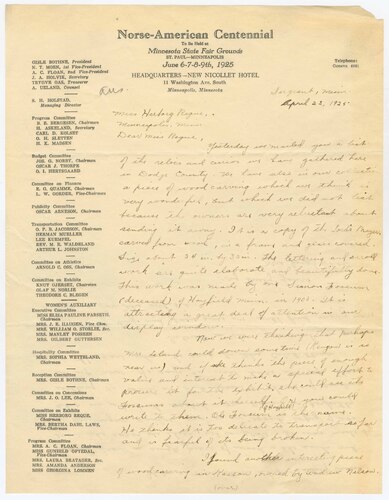 Norse-American Centennial
To Be Held at
Minnesota State Fair Grounds
ST. PAUL—MINNEAPOLIS
June 6-7-8-9th, 1925
HEADQUARTERS—NEW NICOLLET HOTEL
11 Washington Ave. South
Minneapolis, Minnesota
Telephone:
GISLE BOTHNE, President
N. T. MOEN, 1st Vice-President
A. C. FLOAN, 2nd Vice-President
J. A. HOLVIK, Secretary
TRYGVE OAS, Treasurer
A. UELAND, Counsel
S. H. HOLSTAD,
Managing Director
Program Committee
B. E. BERGESEN, Chairman
H. ASKELAND, Secretary
CARL D. KOLSET
O. H. SLETTEN
H. K. MADSEN
Budget Committee
JOS. G. NORBY, Chairman
OSCAR J. THORPE
O. I. HERTSGAARD
Committee on Finance
E. G. QUAMME, Chairman
L. W. GORDER, Vice-Chairman
Publicity Committee
OSCAR ARNESON, Chairman
Transportation Committee
O. P. B. JACOBSON, Chairman
HERMAN MUELLER
LEE KUEMPEL
REV. M. E. WALDELAND
ARTHUR L. JOHNSTON
Committee on Athletics
ARNOLD C. OSS, Chairman
Committee on Exhibits
KNUT GJERSET, Chairman
OLAF M. NORLIE
THEODORE C. BLEGEN
WOMEN'S AUXILIARY
Executive Committee
MISS ELISA PAULINE FARSETH,
Chairman
MRS. J. E. HAUGEN, Vice Chm.
MRS. WILLIAM O. STORLIE, Sec.
MRS. MANLEY FOSSEEN
MRS. GILBERT GUTTERSEN
Hospitality Committee
MRS. SOPHIA WETTELAND,
Chairman
Reception Committee
MRS. GISLE BOTHNE, Chairman
Committee on Concessions
MRS. J. O. LEE, Chairman
Committee on Exhibits
MISS HERBORG REQUE,
Chairman
MRS. BERTHA DAHL LAWS,
Vice-Chairman
Program Committee
MRS. A. C. FLOAN, Chairman
MISS GUNHILD OFTEDAL,
Vice-Chairman
MRS. LAURA BRATAGER, Sec.
MRS. AMANDA ANDERSON
MISS GEORGINA LOMMEN
Sargeant, Minn
April 22, 1925
Miss Herborg Reque,
Minneapolis, Minn.
Dear Miss Reque,
Yesterday we mailed you a list
of the relics and curios we have gathered here
in Dodge County. We have also in our
a piece of wood carving which we think is
very much for, but which we did not list
because the owners are very reluctant about
sending it away. It is a copy of the Lord's Prayer
carved from wood, and framed and glass covered.
Size about 3 The lettering and scroll
work are quite elaborate and beautifully done.
This work was made by Mr. Simon Fossum
(deceased) of Hayfield, Minn. in 1901. It is
attracting a great deal of attention in our
display windows.
Now we were thinking that perhaps
Mrs. Ueland could down sometime (Sargeant is as
near us) and if she thinks the piece of enough
value and interest to make a special effort to
procure it for the exhibits, she could see the
Fossums about it. Or you could
write to them. Ole Fossum is the name.
He thinks it is too delicate to transport so far
and is fearful of its being broken.
I found another interesting piece
of wood carving in Kasson, owned by Andrew Nelson.
(over)